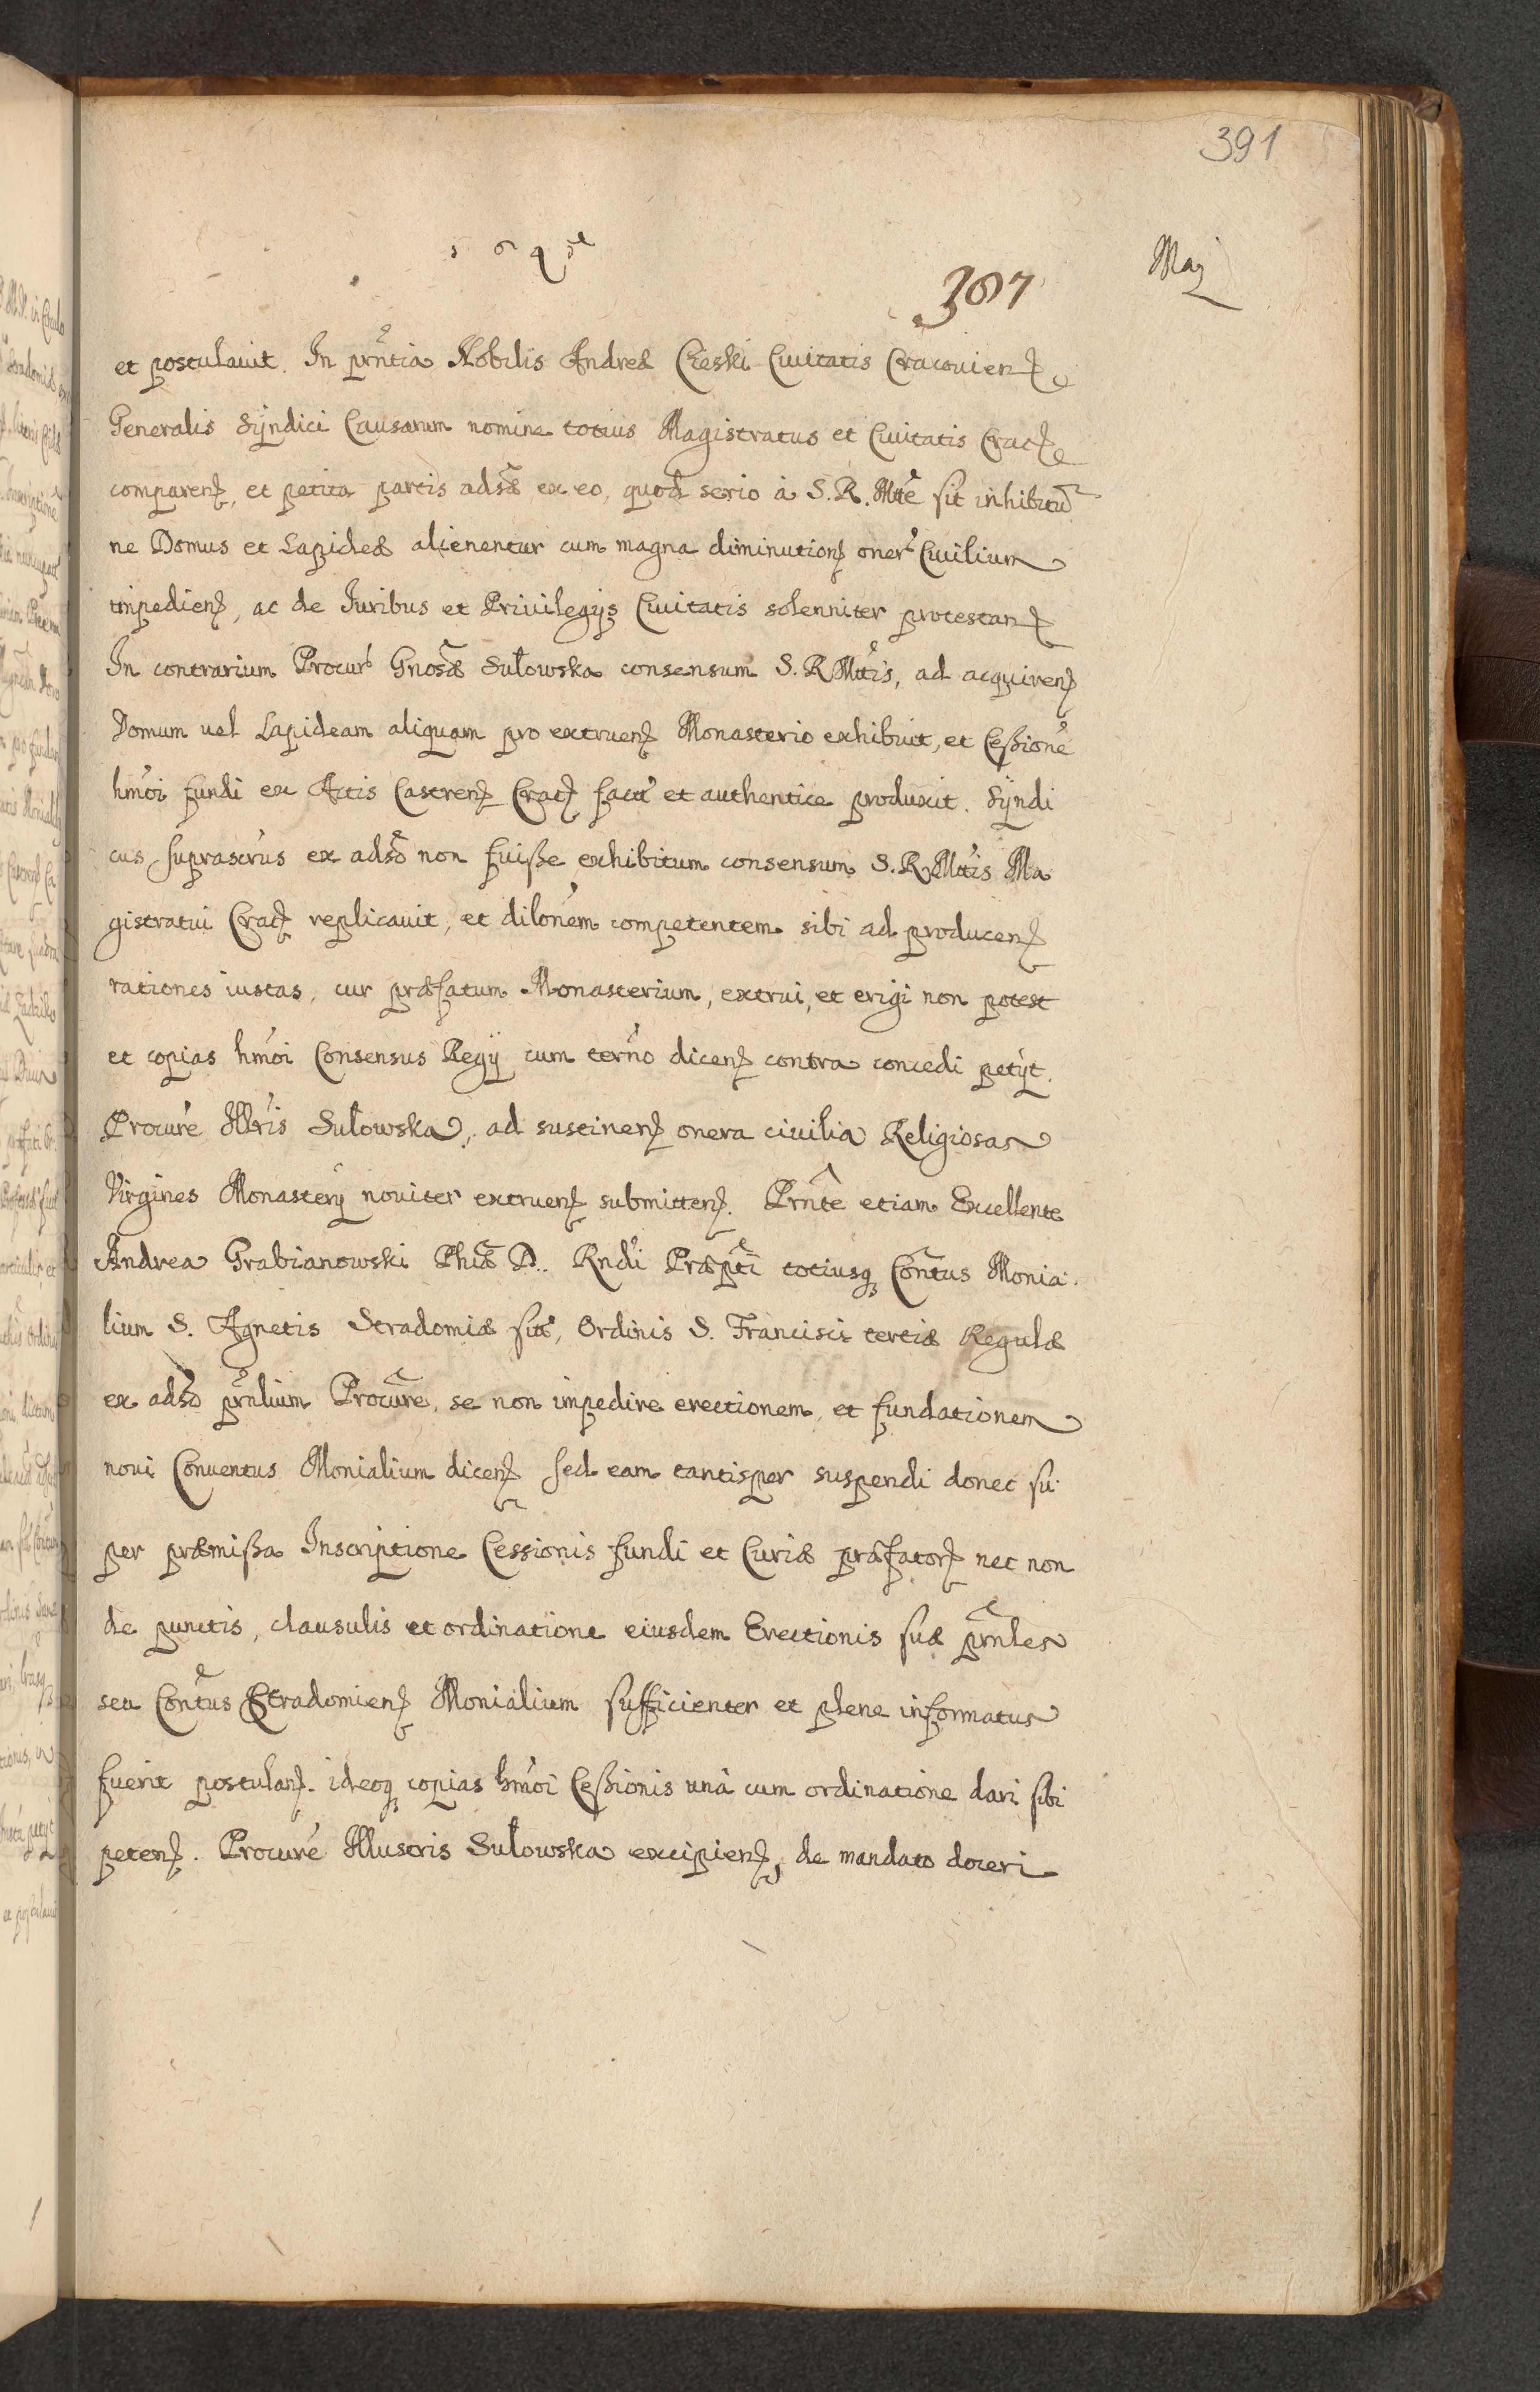 391
Maij
307
et postulauit. In pr̃ntia Nobilis Andreæ Cieski Ciuitatis Cracouien̄
Generalis Sÿndici Causarum nomine totius Magistratus et Ciuitatis Crac̄
comparen̄, et petita partis adsæ ex eo, quod serio à S. R. Mtte sit inhibitũ
ne Domus et Lapideæ alienentur cum magna diminution̄ oner' Ciuilium
impedien̄, ac de Iuribus et Priuilegijs Ciuitatis solenniter protestan̄
In contrarium Procur' Gnosæ Sułowska consensum S. R Mttis, ad acquiren̄
Domum uel Lapideam aliquam pro extruen̄ Monasterio exhibuit, et Ceßionẽ
hmõi fundi ex Actis Castren̄ Crac̄ fact' et authentice produxit. Sÿndi
cus suprascrus ex adsõ non fuiße exhibitum consensum S. R Mttis Ma
gistratui Crac̄ replicauit, et dilonem competentem sibi ad producen̄
rationes iustas, cur præfatum Monasterium, extrui, et erigi non potest
et copias hmõi Consensus Regÿ cum termo dicen̄ contra concedi petÿt.
Procure Illris Sułowska, ad sustinen̄ onera ciuilia Religiosas
Virgines Monasterÿ nouiter extruen̄ submitten̄. Prnte etiam Excellente
Andrea Grabianowski Phiæ D. Rndi Præpti totiusq Contus Monia
lium S. Agnetis Stradomiæ sitæ, Ordinis S. Francisci tertiæ Regulæ
ex adsõ prnlium Procure, se non impedire erectionem, et fundationem
noui Conuentus Monialium dicen̄ sed eam tantisper suspendi donec su
per præmißa Inscriptione Cessionis fundi et Curiæ præfator̄ nec non
de punctis, clausulis et ordinatione eiusdem Erectionis suæ prnles
seu Contus Stradomien̄ Monialium sufficienter et plene informatus
fuerit postulan̄. ideoq copias hmõi Ceßionis unà cum ordinatione dari sibi
peten̄. Procure Illustris Sułowska excipien̄, de mandato doceri